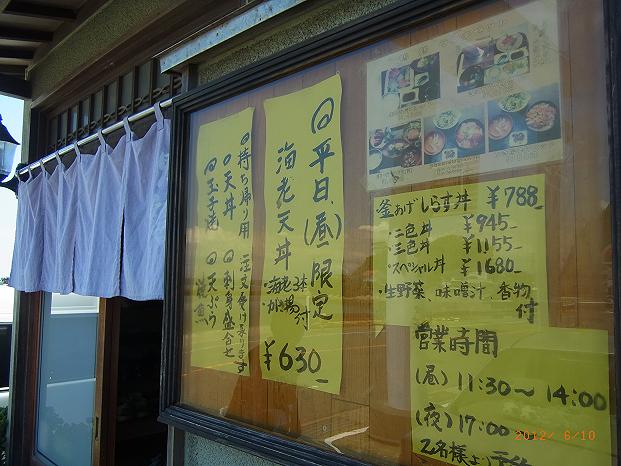 ◎持ち帰り用 注文受け承ります
◎天丼 ◎刺身盛合せ
◎玉子焼 ◎天ぷら
◎平日(昼)限定
海老天丼
・海老3本
・かき揚 付
¥630
釜あげしらす丼 ¥788
・二色丼 ¥945
・三色丼 ¥1155
・スペシャル丼 ¥1680
・生野菜、味噌汁、香物付
営業時間
(昼) 11:30〜14:00
(夜) 17:00
2名様より
2012/ 6/10